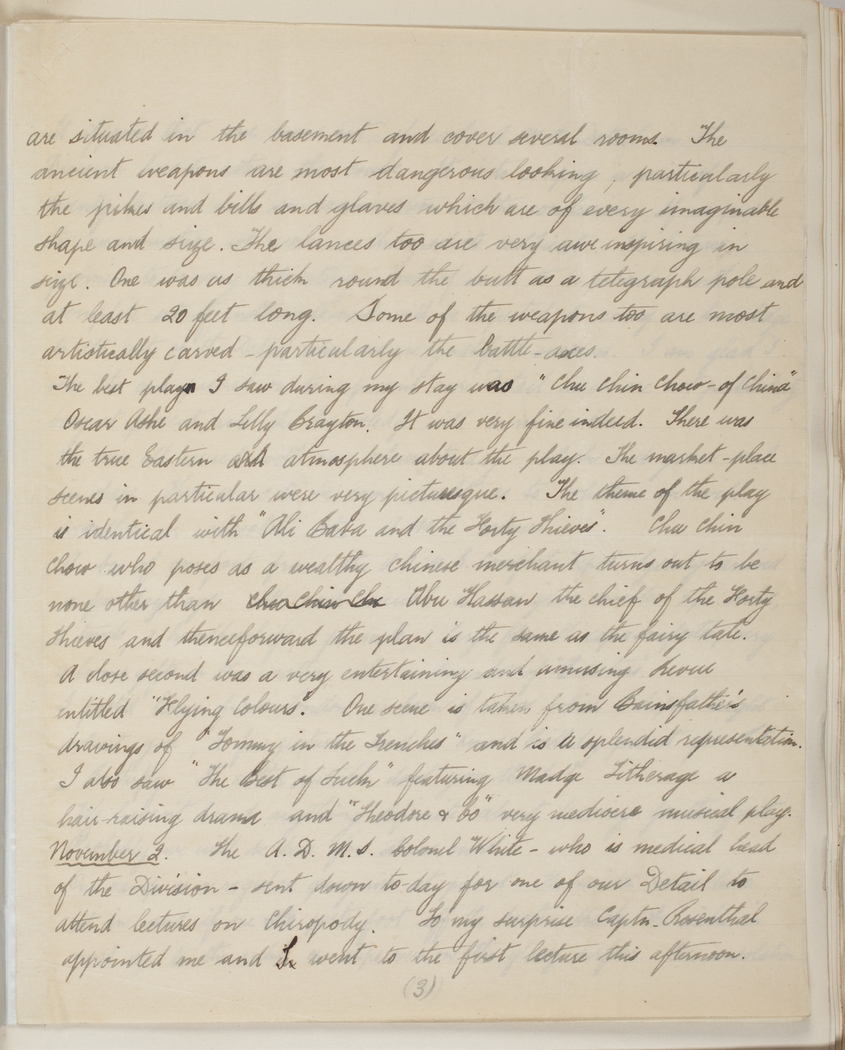 are situated in the basement and cover several rooms. The
ancient weapons are most dangerous looking, particularly
the pikes and bills and glaves which are of every imaginable
shape and size. The lances too are very awe inspiring in
size. One was as thick round the butt as a telegraph pole and
at least 20 feet long. Some of the weapons too are most
artistically carved - particularly the battle-axes.
The best play I saw during my stay was "Chu Chin Chow - of China"
Oscar Ashe and Lilly Brayton. It was very fine indeed. There was
the true Eastern and atmosphere about the play. The market-place
scenes in particular were very picturesque. The theme of the play
is identical with "Ali Baba and the Forty Thieves". Chu Chin
Chow who poses as a wealthy chinese merchant turns out to be
none other than Chu Chin Ch Abu Hassan the chief of the Forty
Thieves and thenceforward the plan is the same as the fairy tale.
A close second was a very entertaining and amusing Revue
entitled "Flying Colours". One scene is taken from Bainsfather's
drawings of "Tommy in the Trenches" and is a splendid representation.
I also saw "The Best of Luck" featuring Madge Titherage a
hair-raising drama and "Theodore & Co" very mediocre musical play.
November 2. The A.D.M.S. Colonel White - who is medical head
of the Division - sent down to-day for one of our Detail to
attend lectures on Chiropody. To my surprise Captn. Rosenthal
appointed me and I went to the first lecture this afternoon.
(3)